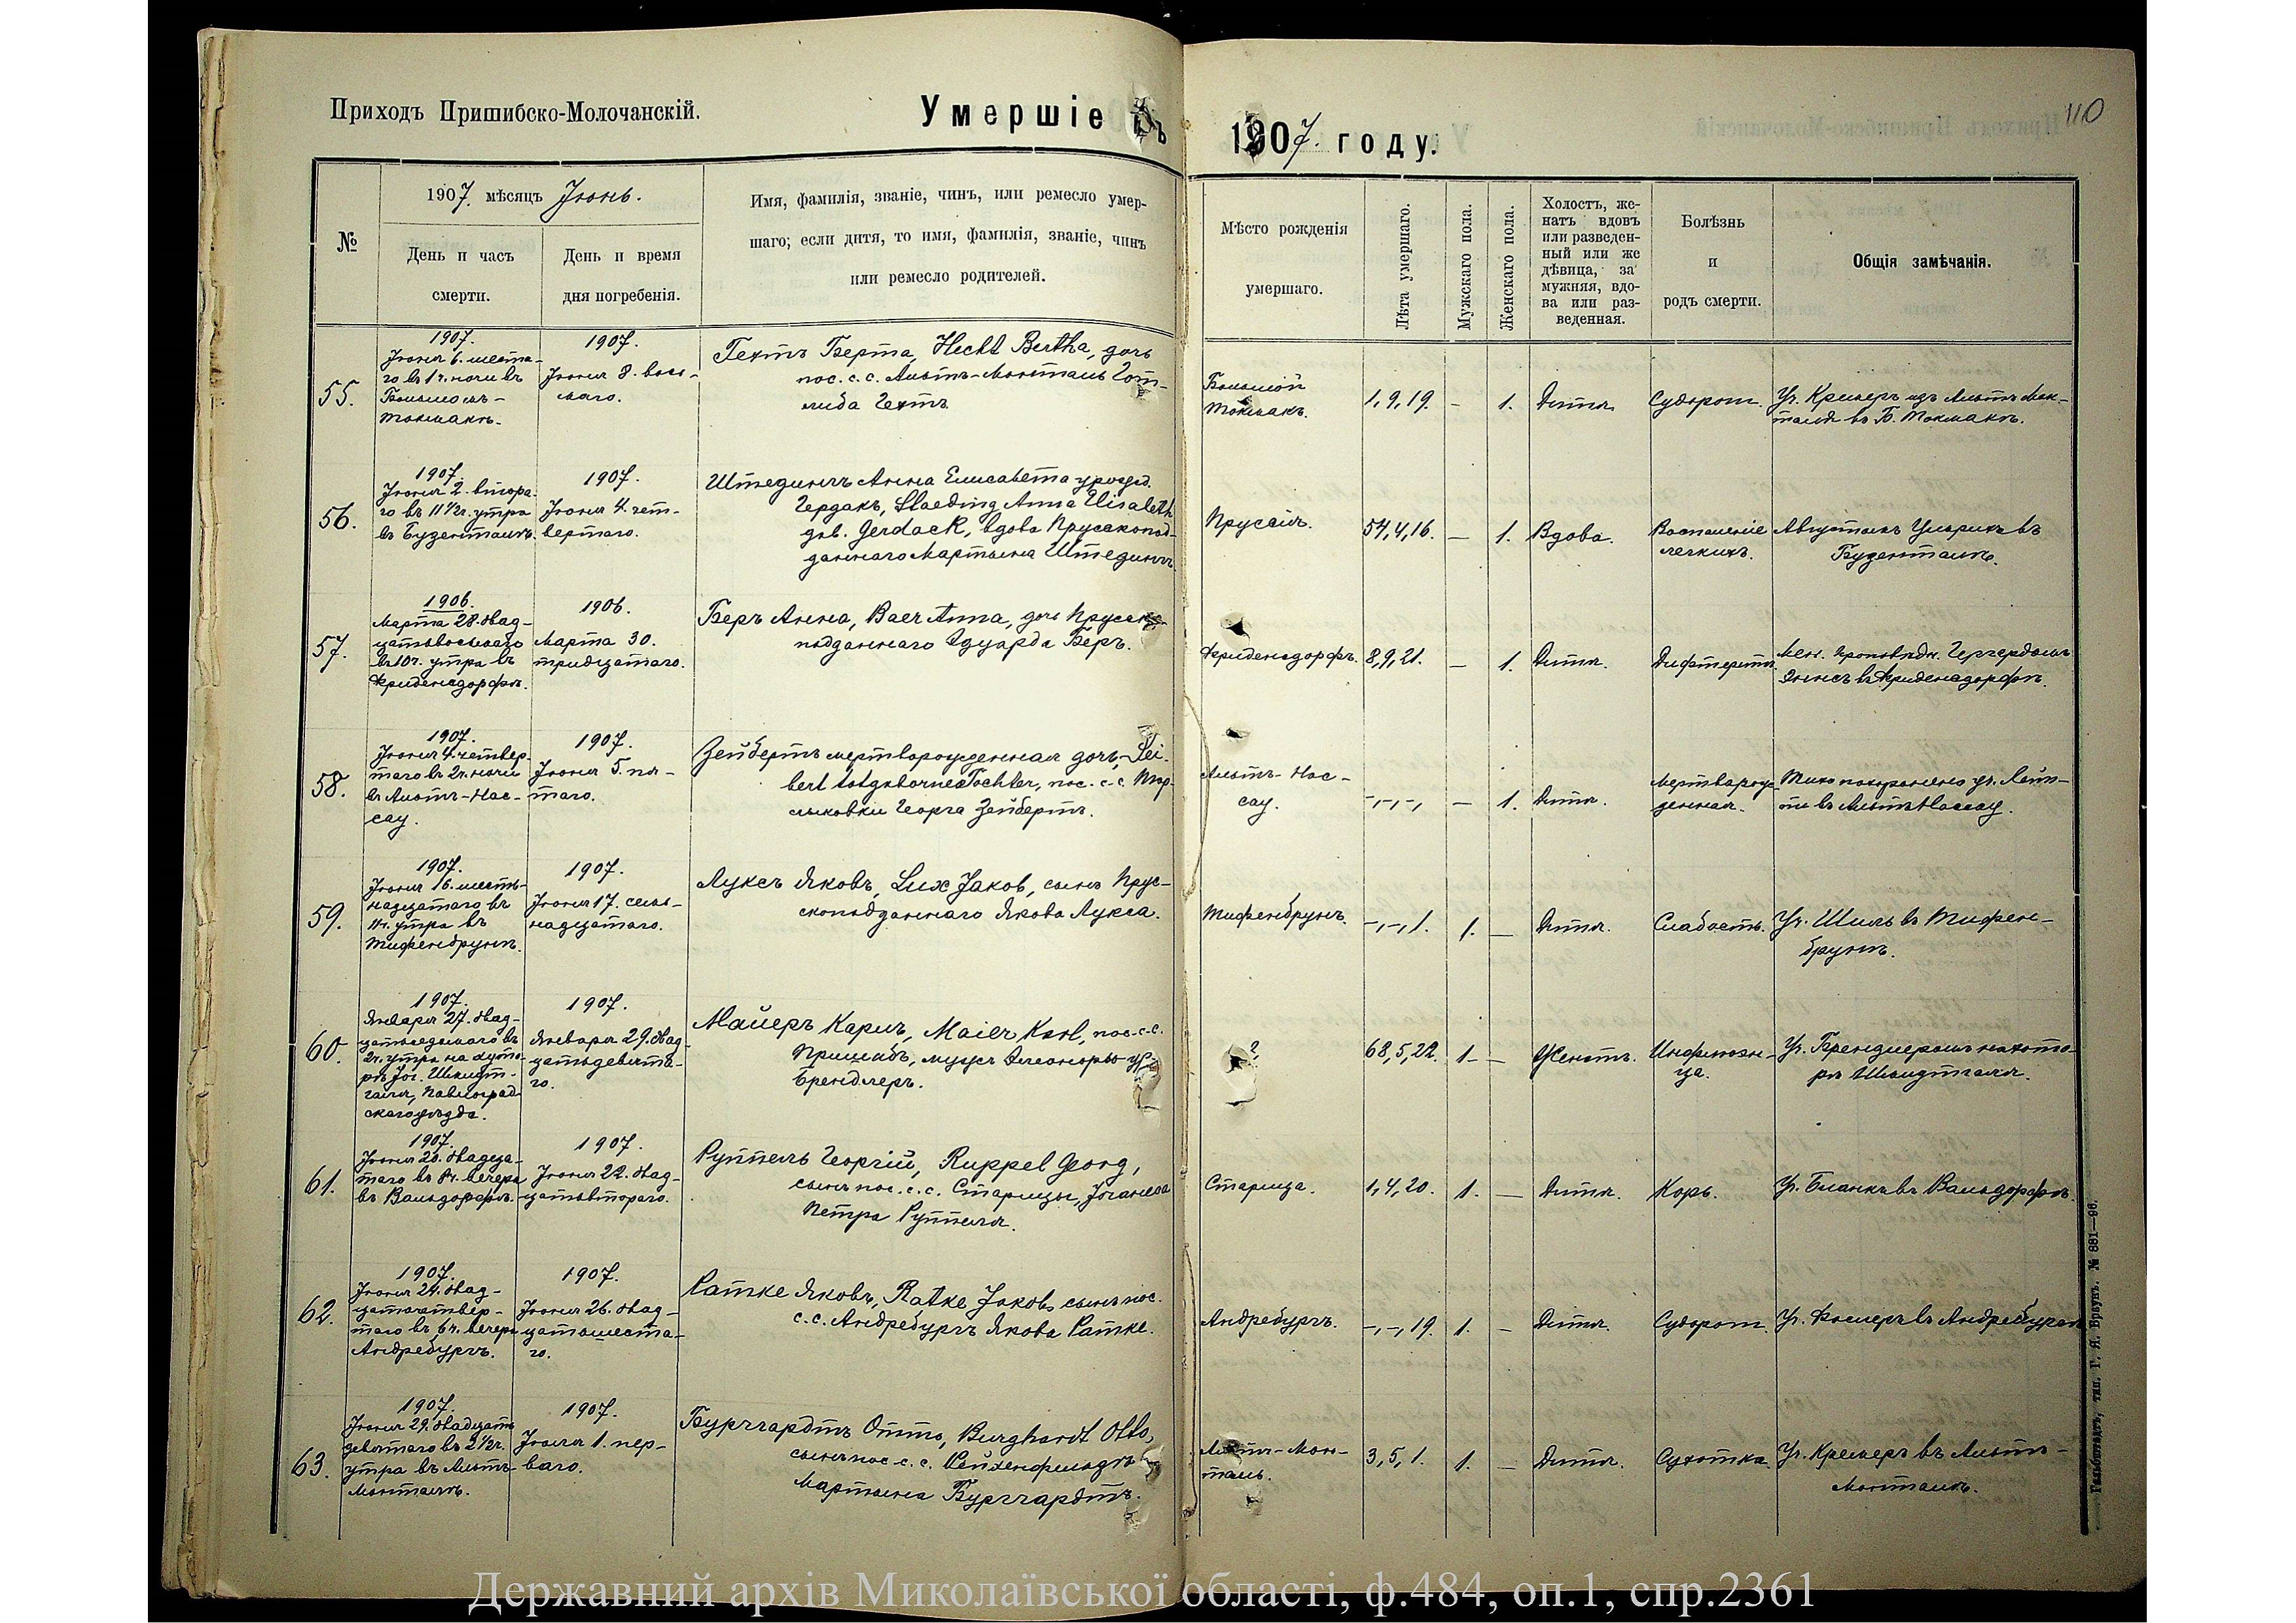 Приходъ Пришибско-Молочанскій.
Умершіе въ
1907. году.
110
№
1907. мѣсяцъ Іюнь.
День и часъ
смерти.
День и время
дня погребенія.
Имя, фамилія, званіе, чинъ, или ремесло умер-
шаго; если дитя, то имя, фамилія, званіе, чинъ
или ремесло родителей.
Мѣсто рожденія
умершаго.
Лѣта умершаго.
Мужскаго пола.
Женскаго пола.
Холостъ, же-
натъ вдовъ
или разведен-
ный или же
дѣвица, за
мужняя, вдо-
ва или раз-
веденная.
Болѣзнь
и
родъ смерти.
Общія замѣчанія.
55.
1907.
Іюня 6. шеста-
го въ 1 ч. ночи въ
Большомъ-
Токмакѣ.
1907.
Іюня 8. вось-
маго.
Гехтъ Берта, Hecht Bertha, дочь
пос. с. с. Альтъ-Монталь Гот-
либа Гехтъ.
Большой
Токмакъ.
1,9,19.
–
1.
Дитя.
Судороги.
Уч. Кремеръ изъ Альтъ Мон-
таля въ Б. Токмакѣ.
56.
1907.
Іюня 2. втора-
го въ 11 1/2 ч. утра
въ Буденталѣ.
1907.
Іюня 4. чет-
вертаго.
Штедингъ Анна Елисавета урожд.
Гердакъ, Staeding Anna Elisabeth
geb. Gerdack, вдова Прусакопод-
даннаго Мартына Штедингъ.
Прусія.
54,4,16.
–
1.
Вдова.
Воспаленіе
легкихъ.
Августомъ Ульрихъ въ
Буденталѣ.
57.
1906.
Марта 28. двад-
цатьвосьмаго
въ 10 ч. утра въ
Фриденсдорфѣ.
1906.
Марта 30.
тридцатаго.
Беръ Анна, Baer Anna, дочь Прусско-
подданнаго Эдуарда Беръ.
Фриденсдорфъ.
8,9,21.
–
1.
Дитя.
Дифтеритъ.
Мен. проповѣдн. Гергердомъ
Эннсъ въ Фриденсдорфѣ.
58.
1907.
Іюня 4. четвер-
таго въ 2 ч. ночи
въ Альтъ-Нас-
сау.
1907.
Іюня 5. пя-
таго.
Зейбертъ мертворожденная дочь, Sei-
bert totgeborne Tochter, пос. с. с. Дур-
лыковки Георга Зейбертъ.
Альтъ-Нас-
сау.
-,-,-,
–
1.
Дитя.
Мертворож-
денная.
Тихо похоронено уч.
въ Альтъ Нассау.
59.
1907.
Іюня 16. шест-
надцатаго въ
11 ч. утра въ
Тифенбрунѣ.
1907.
Іюня 17. семь-
надцатаго.
Луксъ Яковъ, Lux Jakob, сынъ Прус-
скоподданнаго Якова Лукса.
Тифенбрунъ.
-,-,1.
1.
–
Дитя.
Слабость.
Уч. Шиль въ Тифен-
брунѣ.
60.
1907.
Января 27. двад-
цатьседьмаго въ
2 ч. утра на хуто-
рѣ Іог. Шмидт-
галя, Павлоград-
скаго уѣзда.
1907.
Января 29. двад-
цатьдевята-
го.
Майеръ Карлъ, Maier Karl, пос. с. с.
Пришибъ, мужъ Элеоноры ур.
Брендлеръ.
?
68,5,22.
1.
–
Женатъ.
Инфлюэн-
ца.
Уч. Брендлеромъ на хуто-
рѣ Шмидтгаля.
61.
1907.
Іюня 20. двадца-
таго въ 8 ч. вечера
въ Вальдорфѣ.
1907.
Іюня 22. двад-
цатьвтораго.
Руппель Георгій, Ruppel Georg,
сынъ пос. с. с. Старицы, Іоганеса
Петра Руппеля.
Старица.
1,4,20.
1.
–
Дитя.
Корь.
Уч. Бланкъ въ Вальдорфѣ.
62.
1907.
Іюня 24. двад-
цатьчетвер-
таго въ 6 ч. вечера
Андребургъ.
1907.
Іюня 26. двад-
цатьшеста-
го.
Ратке Яковъ, Ratke Jakob, сынъ пос.
с. с. Андребургъ Якова Ратке.
Андребургъ.
-,-,19.
1.
–
Дитя.
Судороги.
Уч. въ Андребургѣ.
63.
1907.
Іюня 29. двадцать
девятаго въ 2 1/2 ч.
утра въ Альтъ-
Монталѣ.
1907.
Іюля 1. пер-
ваго.
Бурггардтъ Отто, Burghardt Otto,
сынъ пос. с. с. Рейхенфельдъ
Мартына Бурггардтъ.
Альтъ-Мон-
таль.
3,5,1.
1.
–
Дитя.
Сухотка.
Уч. Кремеръ въ Альтъ-
Монталѣ.
Гальбштадтъ, тип. Г. Я. Браунъ. № 881—96.
Державний архів Миколаївської області, ф.484, оп.1, спр.2361